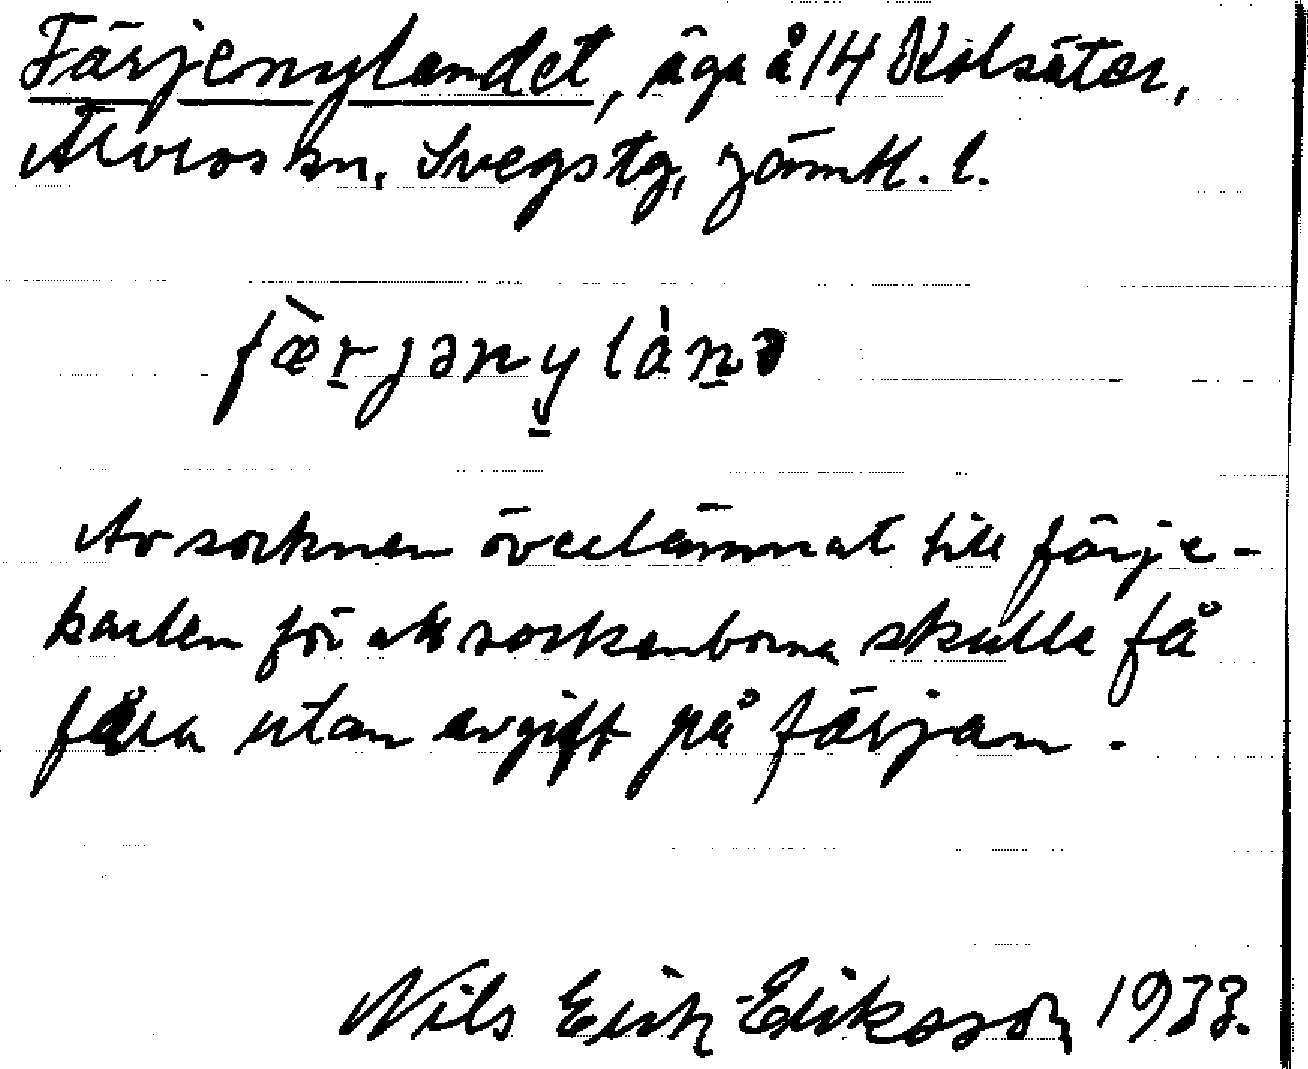 Färjenylandet, äga å 14 Kolsäter,
Älvros sn, Svegs tg, Jämtl. l.
fæ̀rjənylànə
Av socknen överlämnat till färje-
karlen för att sockenborna skulle få
fara utan avgift på färjan.
Nils Erik Eriksson 1933.